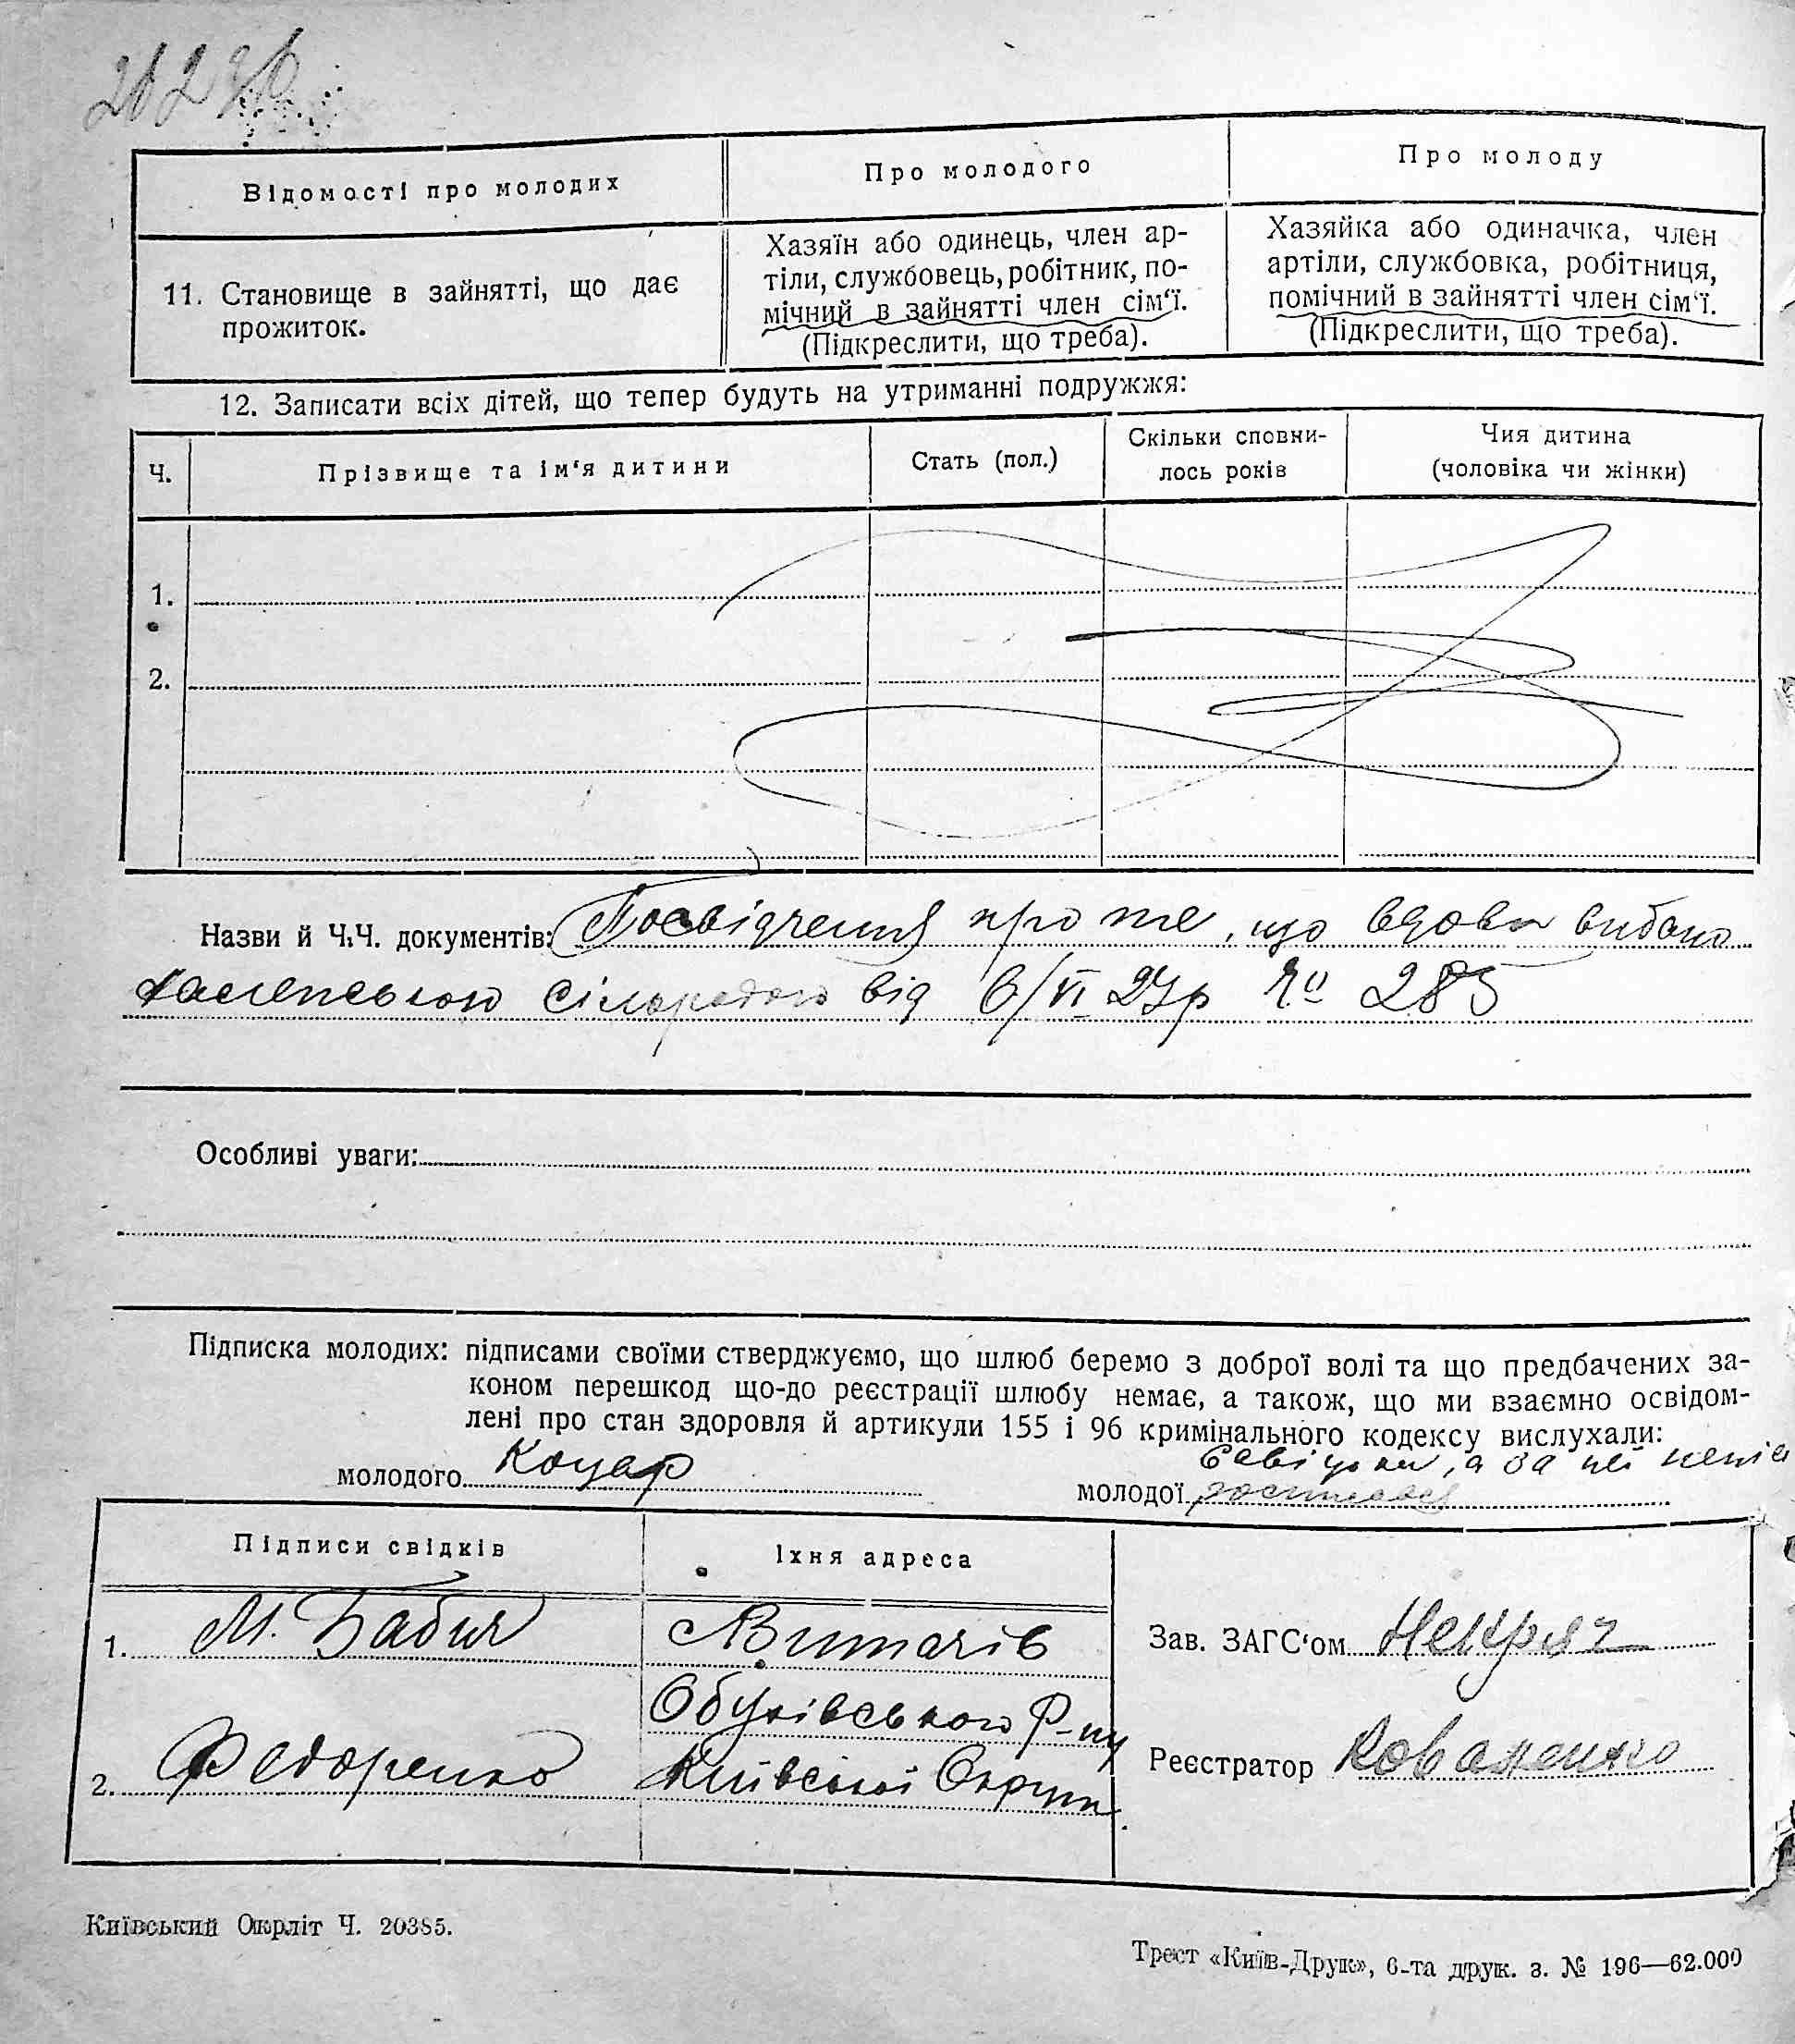 Відомості про молодих
Про молодого
Про молоду
11. Становище в зайнятті, що дає
прожиток.
Хазяїн або одинець, член ар-
тіли, службовець, робітник, по-
мічний в зайнятті член сім'ї.
(Підкреслити, що треба).
Хазяйка або одиначка, член
артіли, службовка, робітниця,
помічний в зайнятті член сім'ї.
(Підкреслити, що треба).
12. Записати всіх дітей, що тепер будуть на утриманні подружжя:
Ч.
Прізвище та ім'я дитини
Стать (пол.)
Скільки сповни-
лось років
Чия дитина
(чоловіка чи жінки)
1.
2.
Назви й Ч.Ч. документів: Посвідчення про те, що вдова видано
сільрадою від 6/VI 27р № 285
Особливі уваги:
Підписка молодих: підписами своїми стверджуємо, що шлюб беремо з доброї волі та що предбачених за-
коном перешкод що-до реєстрації шлюбу немає, а також, що ми взаємно освідом-
лені про стан здоровля й артикули 155 і 96 кримінального кодексу вислухали:
молодого Коцар
а за неї непис
молодої
Підписи свідків
Їхня адреса
1. М. Бабич
Витачів
Обухівського Р-ну
2. Федоренко
Київської Округи
Зав. ЗАГС'ом Некряч
Реєстратор Коваленко
Київський Окрліт Ч. 20385.
Трест «Київ-Друк», 6-та друк. з. № 196—62.000